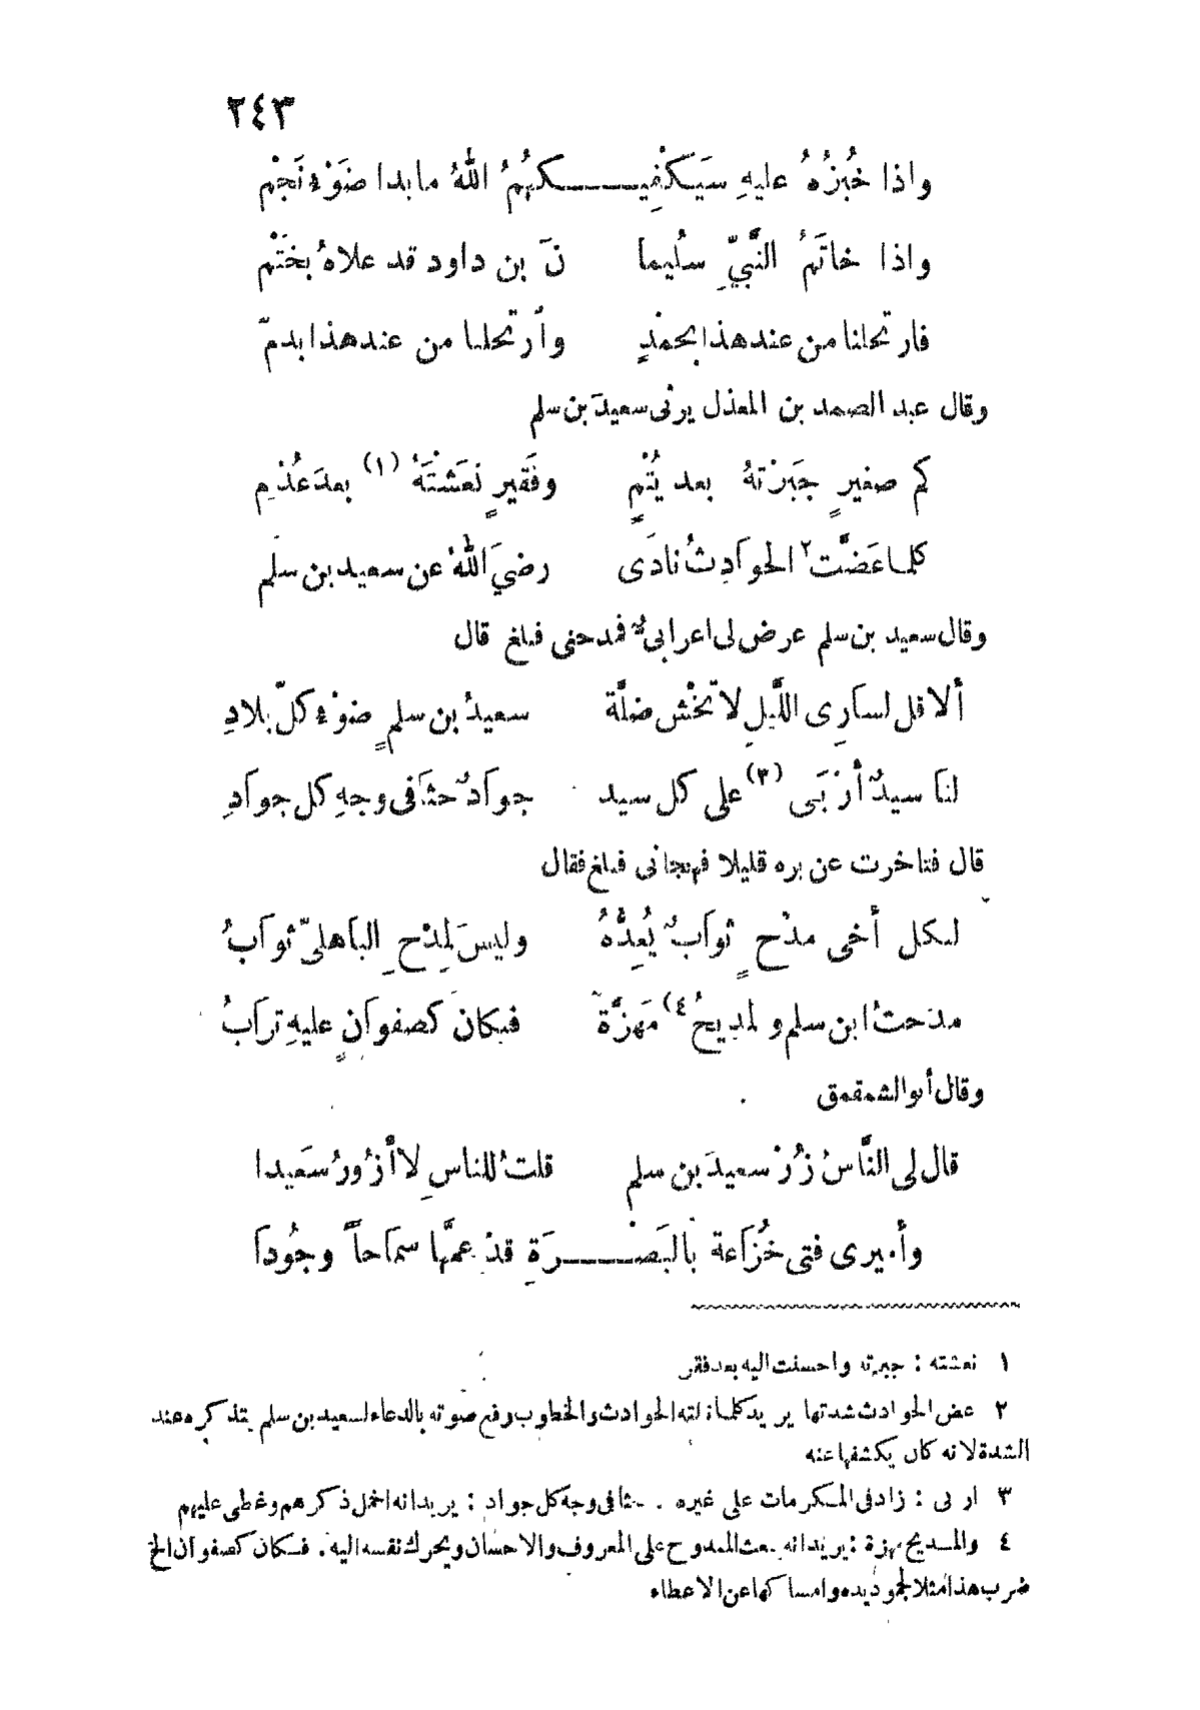 ٢٤٣
واذا خُبزُهُ عليهِ سَيَكْفِيـــكهُمُ اللهُ ما بدا ضَوْءُ نَجْمِ
واذا خاتَمُ النَّبيِّ سُليما نَ بن داود قد علاهُ بخَتْمِ
فارتحلنا من عند هذا بحمْدٍ وأرتحلنا من عند هذا بدمّ
وقال عبد الصمد بن المعذل يرثى سعيدَ بن سلم
كم صغيرٍ جَبَرْتهُ بعد يُتْمٍ وفَقيرٍ نَعَشْتَهُ (١) بعدَ عُدْمِ
كلما عَضَّت ٢ الحوادِثُ نادَى رضيَ اللهُ عن سعيد بن سلم
وقال سعيد بن سلم عرض لى اعرابىٌّ فمدحنى فبلغ قال
ألا قل لسارِى اللَّيلِ لا تخْش ضلَّة سعيدُ بن سلمٍ ضوْءُ كلّ بلادِ
لنا سيدٌ أرْبَى (٣) على كل سيد جوادٌ حثَا فى وجهِ كل جوادِ
قال فتاخرت عن بره قليلا فهجانى فبلغ فقال
لكل أخى مدْحٍ ثوابٌ يُعِدُّهُ وليسَ لمدْحِ الباهلىّ ثوابُ
مدَحتُ ابن سلم ولمديحُ (٤ مَهزَّة فكانَ كصفوانٍ عليهِ ترابُ
وقال أبو الشمقمق
قال لى النَّاسُ زُرْ سعيدَ بن سلم قلتُ للناسِ لا أزُورُ سَعيدا
وأميرى فتى خُزَاعة بالبَصْـــرَةِ قدْ عمَّها سمَاحاً وجُودا
١ نعشته : جبرته واحسنت اليه بعد فقر
٢ عض الحوادث شدتها يريد كلما نزلته الحوادث والخطوب رفع صوته بالدعاء لسعيد بن سلم يتذكره عند
الشدة لانه كان يكشفها عنه
٣ اربى : زاد فى المكرمات على غيره . حثا فى وجه كل جواد : يريد انه اخمل ذكرهم وغطى عليهم
٤ والمديح مهزة : يريد انه يبعث الممدوح على المعروف والاحسان ويحرك نفسه اليه . فكان كصفوان الخ
ضرب هذا مثلا لجمود يده وامساكها عن الاعطاء